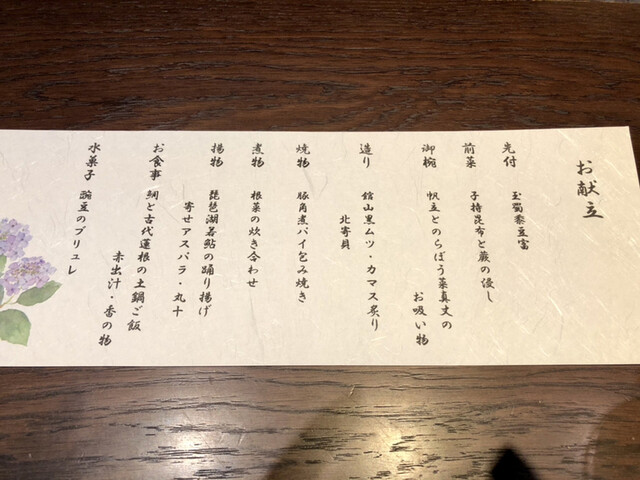 お献立
先付 玉蜀黍豆富
前菜 子持昆布と蕨の浸し
御椀 帆立とのらぼう菜真丈の
お吸い物
造り 館山黒ムツ・カマス炙り
北寄貝
焼物 豚角煮パイ包み焼き
煮物 根菜の炊き合わせ
揚物 琵琶湖若鮎の踊り揚げ
寄せアスパラ・丸十
お食事 鯛と古代蓮根の土鍋ご飯
赤出汁・香の物
水菓子 豌豆のブリュレ